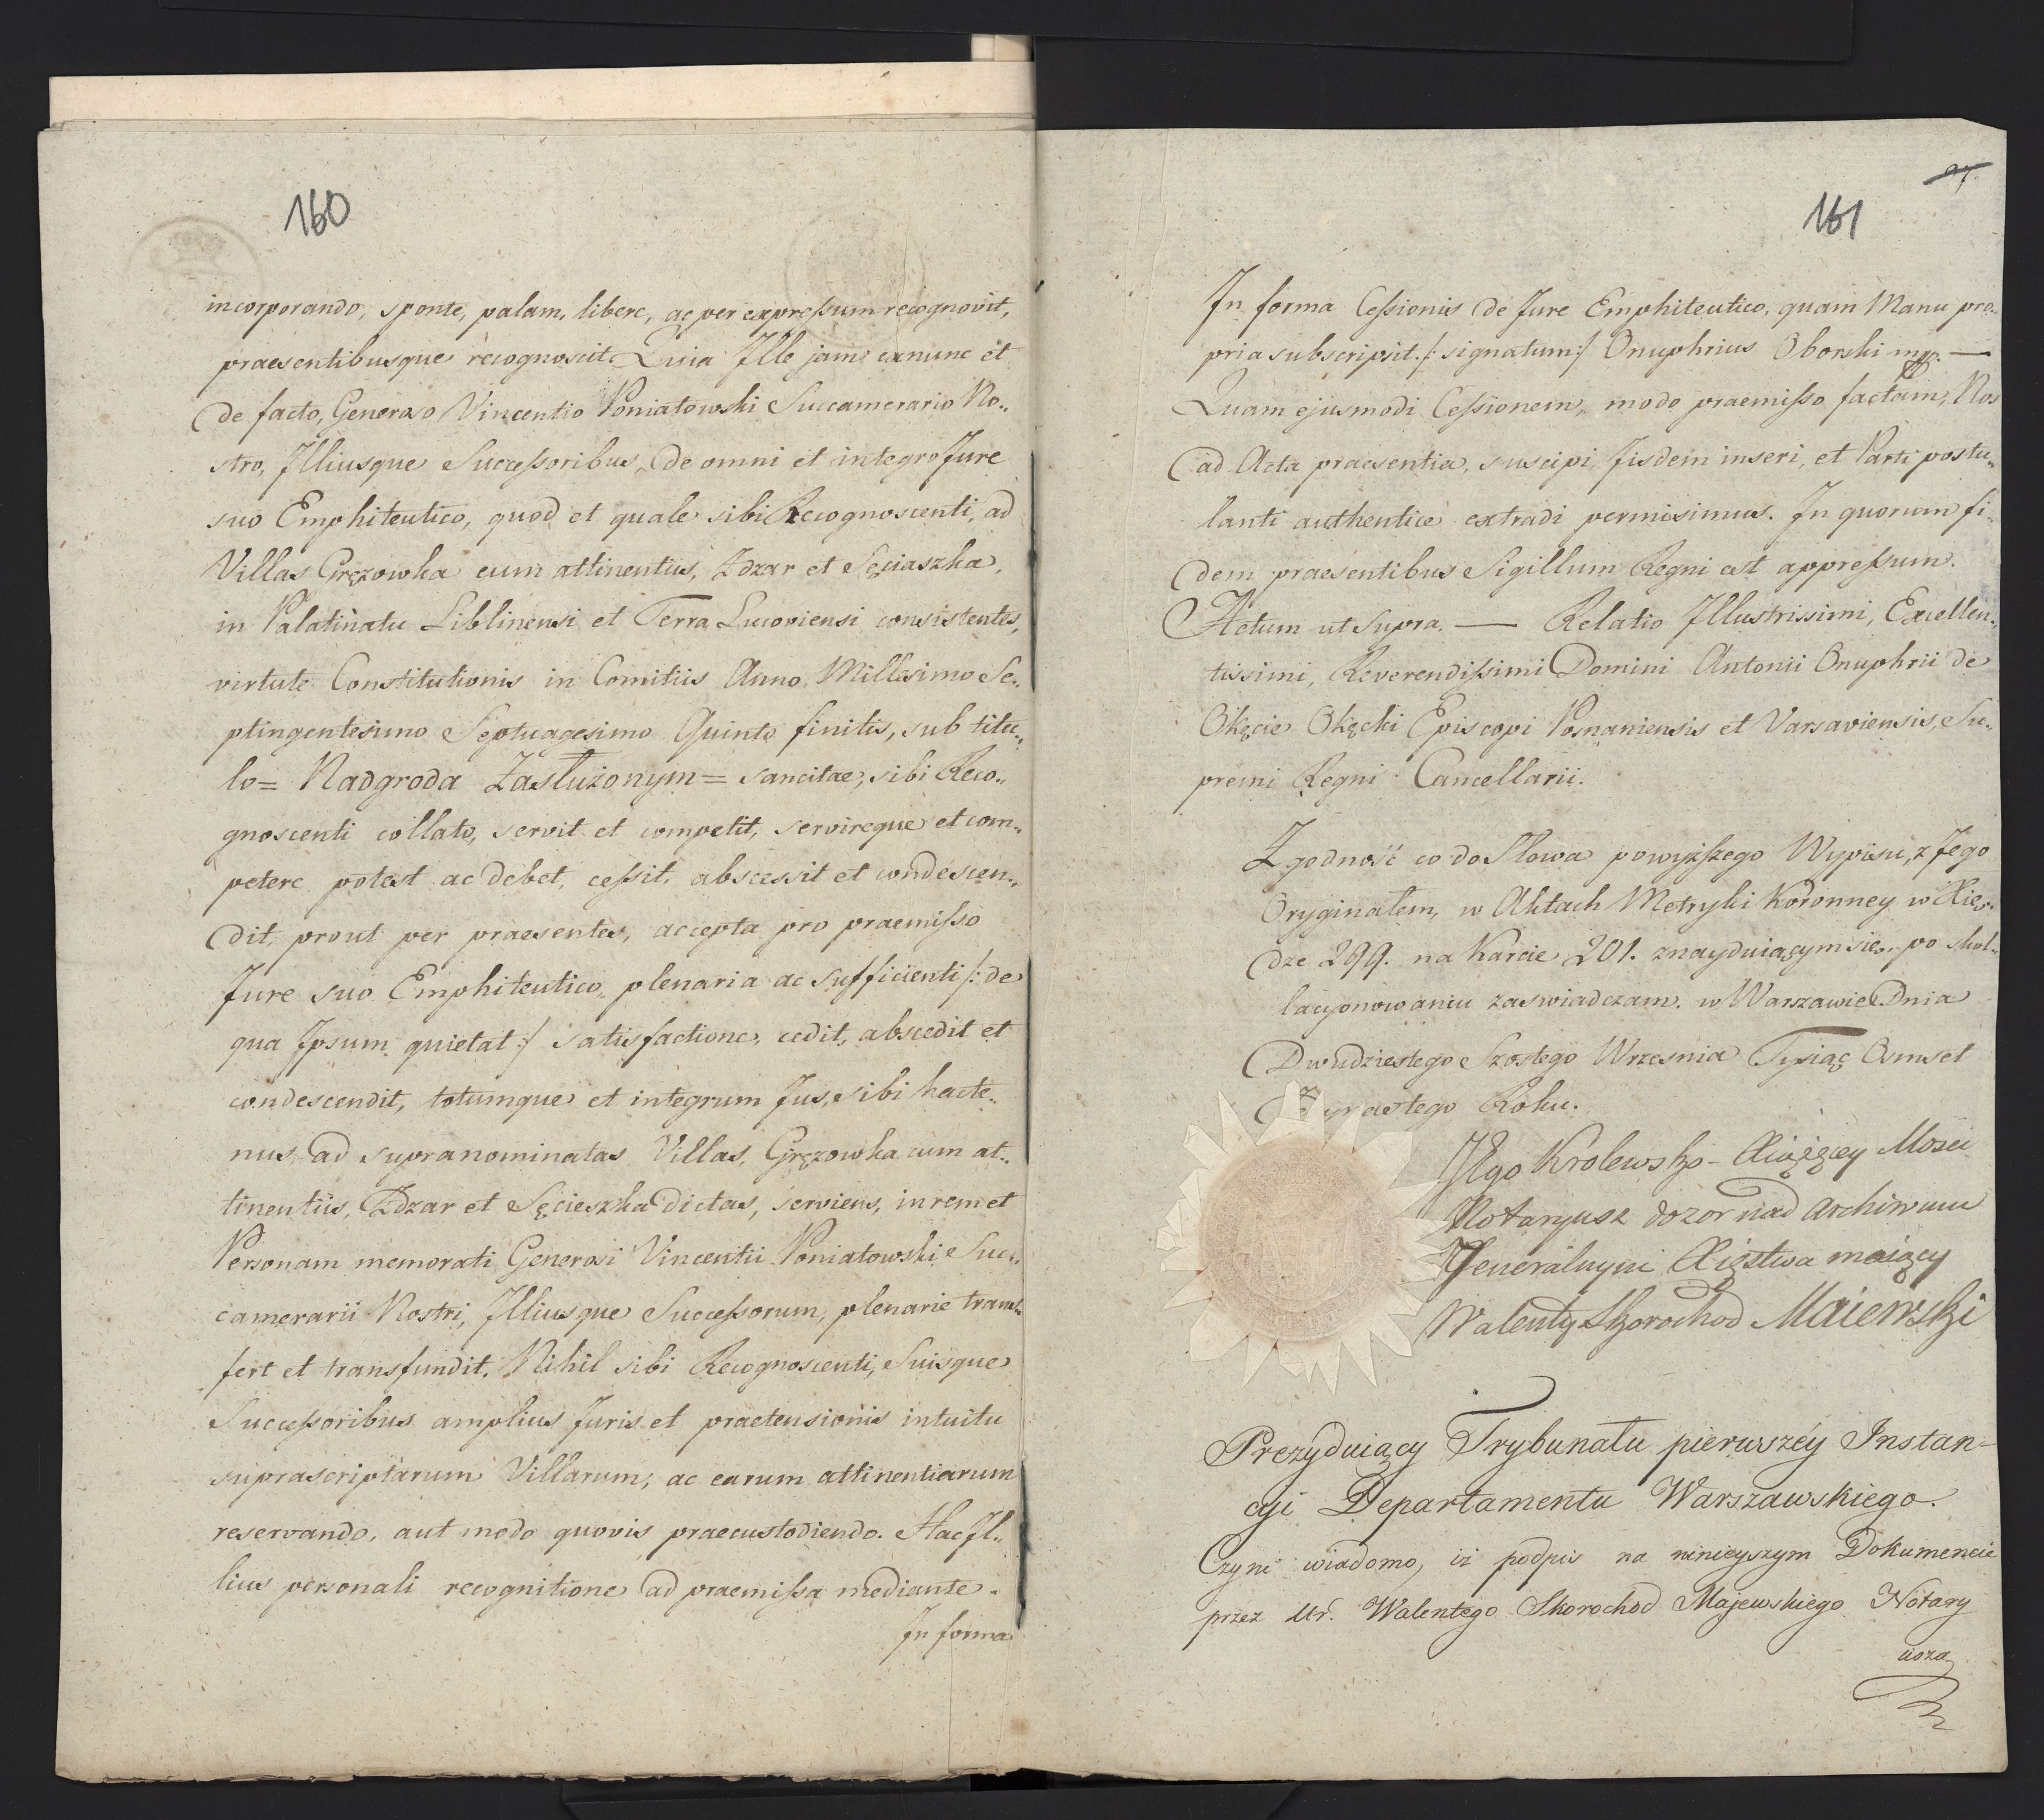 160
incorporando, sponte, palam, libere, ac per expressum recognovit,
praesentibusque recognoscit. Quia Ille jam exnunc et
de facto, Generoso Vincentio Poniatowski Succamerario No„
stro, Illiusque Successoribus, de omni et integro Jure
suo Emphiteutico, quod et quale sibi Recognoscenti, ad
Villas Gręzowka cum attinentiis, Zdzar et Sęciaszka,
in Palatinatu Liblinensi et Terra Lucoviensi consistentes,
virtute Constitutionis in Comitiis Anno Millesimo Se„
ptingentesimo Septuagesimo Quinto finitis, sub titu„
lo= Nadgroda Zasłużonym= sancitae, sibi Reco„
gnoscenti collato, servit et competit, servireque et com„
petere potest ac debet, cessit, abscessit et condescen„
dit, prout per praesentes, accepta pro praemisso
Jure suo Emphiteutico, plenaria ac sufficienti /: de
qua Ipsum quietat :/ satisfactione, cedit, abscedit et
condescendit, totumque et integrum Jus, sibi hacte„
nus, ad supranominatas Villas, Gręzowka cum at„
tinentiis, Zdzar et Sęcieszka dictas, serviens, in rem et
Personam memorati Generosi Vincentii Poniatowski Suc„
camerarii Nostri, Illiusque Successorum, plenarie trans„
fert et transfundit, Nihil sibi Recognoscenti, Suisque
Successoribus amplius Juris et praetensionis intuitu
suprascriptarum Villarum, ac earum attinentiarum
reservando, aut modo quovis praecustodiendo. Hac Il„
lius personali recognitione ad praemissa mediante.
In forma
161
In forma Cessionis de Jure Emphiteutico, quam Manu pro„
pria subscripsit. /: signatum :/ Onuphrius Oborski mp. —
Quam ejusmodi Cessionem, modo praemisso factam, Nos
ad Acta praesentia, suscipi, Iisdem inseri, et Parti postu„
lanti authentice extradi permisimus. In quorum fi„
dem praesentibus Sigillum Regni est appressum.
Actum ut Supra. — Relatio Illustrissimi, Excellen„
tissimi, Reverendissimi Domini Antonii Onuphrii de
Okęcie Okęcki Episcopi Posnaniensis et Varsaviensis, Su„
premi Regni Cancellarii.
Zgodność co do Słowa powyższego Wypisu, z Jego
Oryginałem, w Aktach Metryki Koronney w Xię„
dze 299. na Karcie 201. znayduiącym się, po skol„
lacyonowaniu zaswiadczam. w Warszawie Dnia
Dwudziestego Szostego Wrzesnia Tysiąc Osmset
Roku.
JEgo Krolewsko-Xiążęcey Mosci
Notaryusz dozor nad Archiwum
Generalnym Xięstwa maiący
Walenty Skorochod Maiewski
Prezyduiący Trybunału pierwszéy Instan=
cyi Departamentu Warszawskiego.
Czyni wiadomo, iż podpis na ninieyszym Dokumencie
przez Ur. Walentego Skorochod Majewskiego Notary
usza